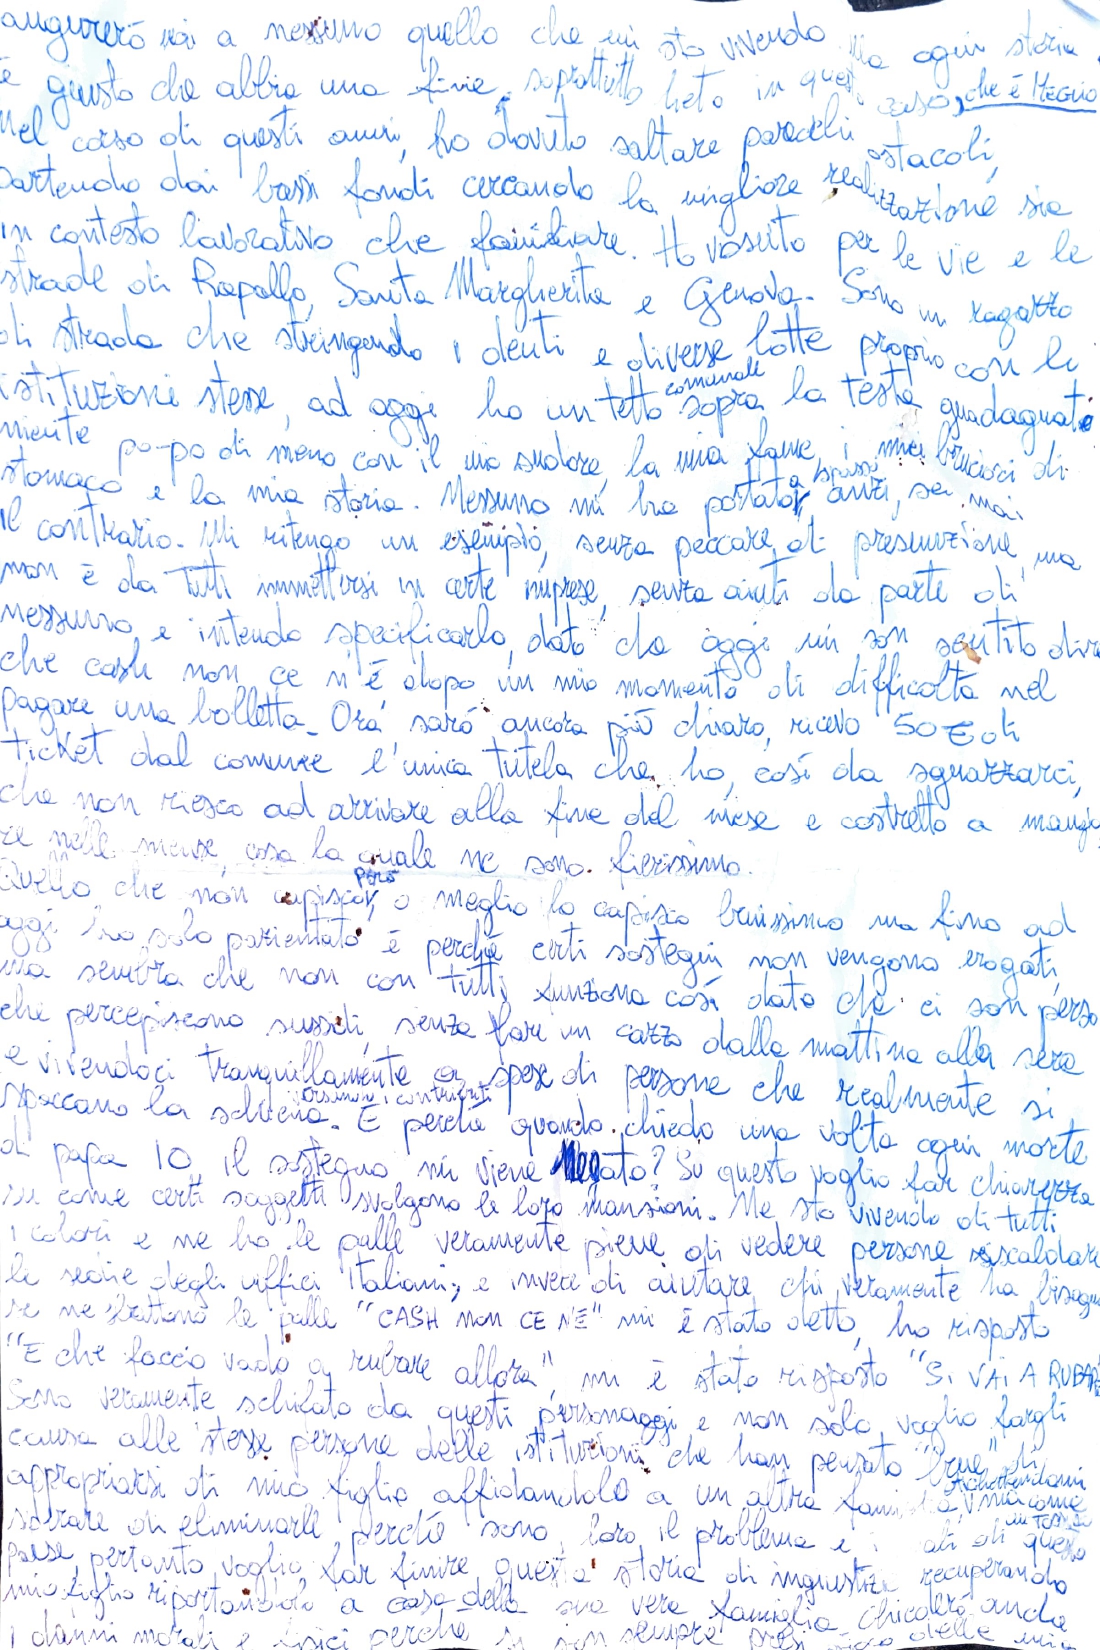 augurerò mai a nessuno quello che mi sto vivendo ma ogni storia
è giusto che abbia una fine, soprattutto lieto in questo caso, che è MEGLIO
Nel corso di questi anni, ho dovuto saltare parecchi ostacoli,
partendo dai bassi fondi cercando la migliore realizzazione sia
in contesto lavorativo che familiare. Ho vissuto per le vie e le
strade di Rapallo, Santa Margherita e Genova. Sono un ragazzo
di strada che stringendo i denti e diverse lotte proprio con le
istituzioni stesse, ad oggi ho un tetto comunale sopra la testa guadagnato
niente po-po di meno con il mio sudore, la mia fame, i miei bruciori di
stomaco e la mia storia. Nessuno mi ha portato a spasso, anzi, sei mai
il contrario. Mi ritengo un esempio, senza peccare di presunzione, ma
non è da tutti immettersi in certe imprese, senza aiuti da parte di
nessuno, e intendo specificarlo, dato che oggi mi son sentito dire
che cash non ce n'è dopo un mio momento di difficoltà nel
pagare una bolletta. Ora sarò ancora più chiaro, ricevo 50€ di
ticket dal comune l'unica tutela che ho, così da sguazzarci,
che non riesco ad arrivare alla fine del mese e costretto a mangia
re nelle mense, cosa la quale ne sono fierissimo.
Quello che non capisco però, o meglio lo capisco benissimo ma fino ad
oggi ho solo pazientato è perché certi sostegni non vengono erogati,
ma sembra che non con tutti funziona così dato che ci son perso
che percepiscono sussidi, senza fare un cazzo dalla mattina alla sera
e vivendoci tranquillamente a spese di persone che realmente si
spaccano la schiena. E perché quando chiedo una volta ogni morte
di papa 10, il sostegno mi viene Negato? Su questo voglio far chiarezza
su come certi soggetti svolgono le loro mansioni. Me sto vivendo di tutti
i colori e ne ho le palle veramente piene di vedere persone riscaldare
le sedie degli uffici Italiani, e invece di aiutare chi veramente ha bisogno
se ne sbattono le palle "CASH NON CE N'È" mi è stato detto, ho risposto
"E che faccio vado a rubare allora", mi è stato risposto "SI VAI A RUBARE
Sono veramente schifato da questi personaggi e non solo, voglio fargli
causa alle stesse persone delle istituzioni che han pensato "bene" di
appropriarsi di mio figlio affidandolo a un altra famiglia, come
sperare di eliminarli perché sono loro il problema e i di questo
paese pertanto voglio far finire questa storia di ingiustizia recuperando
mio figlio riportandolo a casa della sua vera famiglia Chiederò anche
i danni morali e fisici perché si son sempre delle